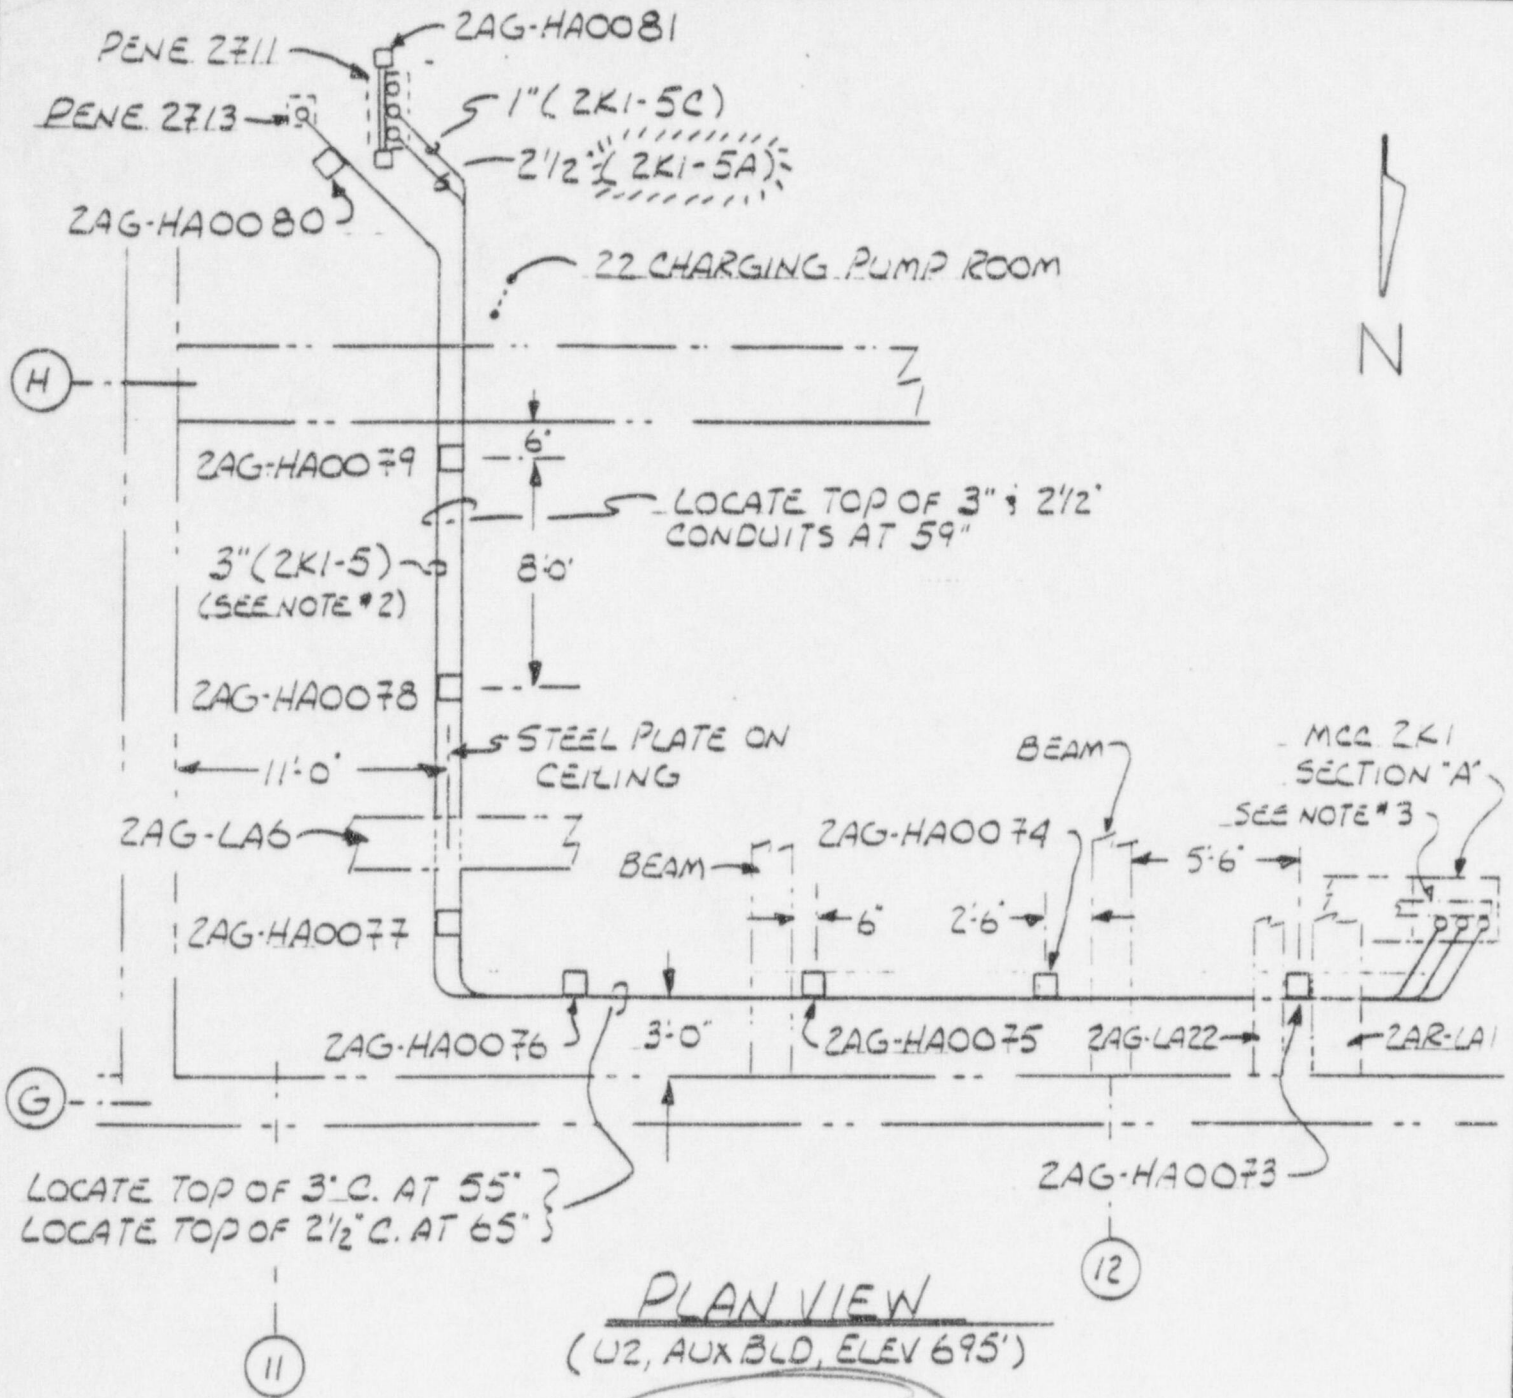 2AG-HA0081
PENE. 2711
1" (2K1-5C)
PENE. 2713
2 1/2" (2K1-5A)
2AG-HA0080
22 CHARGING PUMP ROOM
N
H
6"
2AG-HA0079
LOCATE TOP OF 3" & 2 1/2"
CONDUITS AT 59"
3" (2K1-5)
(SEE NOTE #2)
8'-0"
2AG-HA0078
STEEL PLATE ON
CEILING
11'-0"
BEAM
MCC 2K1
SECTION "A"
SEE NOTE #3
2AG-LA6
2AG-HA0074
BEAM
5'-6"
6"
2'-6"
2AG-HA0077
2AG-HA0076
3'-0"
2AG-HA0075
2AG-LA22
2AR-LA1
G
2AG-HA0073
LOCATE TOP OF 3" C. AT 55"
LOCATE TOP OF 2 1/2" C. AT 65"
12
PLAN VIEW
(U2, AUX BLD, ELEV 695')
11